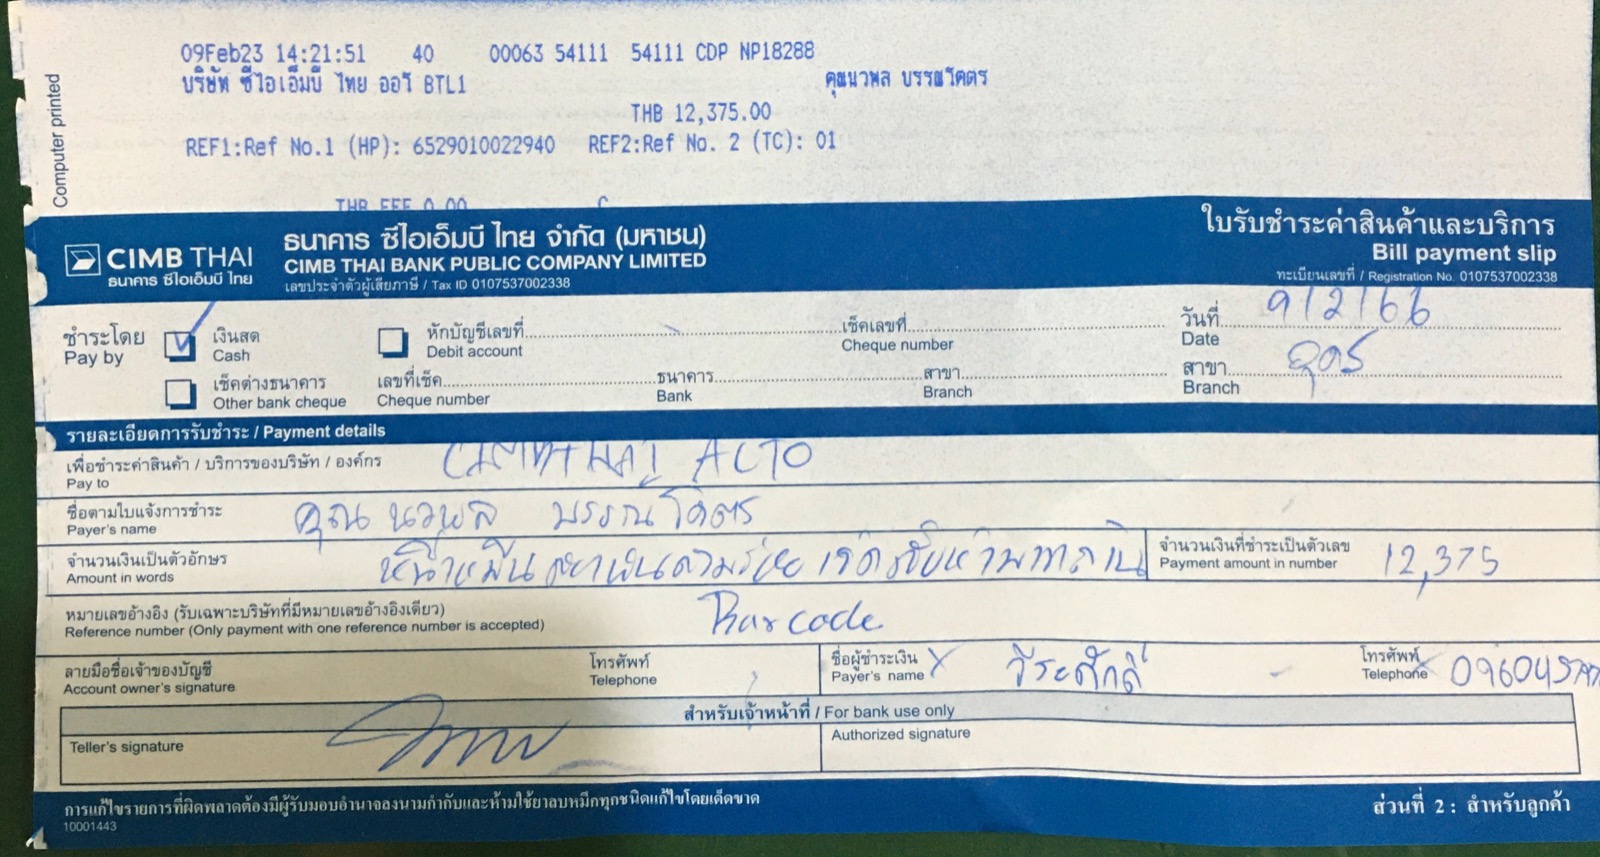 Computer printed
09Feb23 14:21:51 40 00063 54111 54111 CDP NP18288
บริษัท ซีไอเอ็มบี ไทย ออโ BTL1 คุณนวพล บรรณโคตร
THB 12,375.00
REF1:Ref No.1 (HP): 6529010022940 REF2:Ref No. 2 (TC): 01
THB FEE 0.00 C
CIMB THAI
ธนาคาร ซีไอเอ็มบี ไทย
ธนาคาร ซีไอเอ็มบี ไทย จำกัด (มหาชน)
CIMB THAI BANK PUBLIC COMPANY LIMITED
เลขประจำตัวผู้เสียภาษี / Tax ID 0107537002338
ใบรับชำระค่าสินค้าและบริการ
Bill payment slip
ทะเบียนเลขที่ / Registration No. 0107537002338
ชำระโดย เงินสด หักบัญชีเลขที่ เช็คเลขที่ วันที่ 9/2/66
Pay by Cash Debit account Cheque number Date
เช็คต่างธนาคาร เลขที่เช็ค ธนาคาร สาขา สาขา อุดร
Other bank cheque Cheque number Bank Branch Branch
รายละเอียดการรับชำระ / Payment details
เพื่อชำระค่าสินค้า / บริการของบริษัท / องค์กร CIMB THAI AUTO
Pay to
ชื่อตามใบแจ้งการชำระ คุณ นวพล บรรณโคตร
Payer's name
จำนวนเงินเป็นตัวอักษร จำนวนเงินที่ชำระเป็นตัวเลข 12,375
Amount in words Payment amount in number
หมายเลขอ้างอิง (รับเฉพาะบริษัทที่มีหมายเลขอ้างอิงเดียว) Barcode
Reference number (Only payment with one reference number is accepted)
ลายมือชื่อเจ้าของบัญชี โทรศัพท์ ชื่อผู้ชำระเงิน วีระศักดิ์ โทรศัพท์ 096045
Account owner's signature Telephone Payer's name Telephone
สำหรับเจ้าหน้าที่ / For bank use only
Teller's signature Authorized signature
การแก้ไขรายการที่ผิดพลาดต้องมีผู้รับมอบอำนาจลงนามกำกับและห้ามใช้ยาลบหมึกทุกชนิดแก้ไขโดยเด็ดขาด
10001443
ส่วนที่ 2 : สำหรับลูกค้า